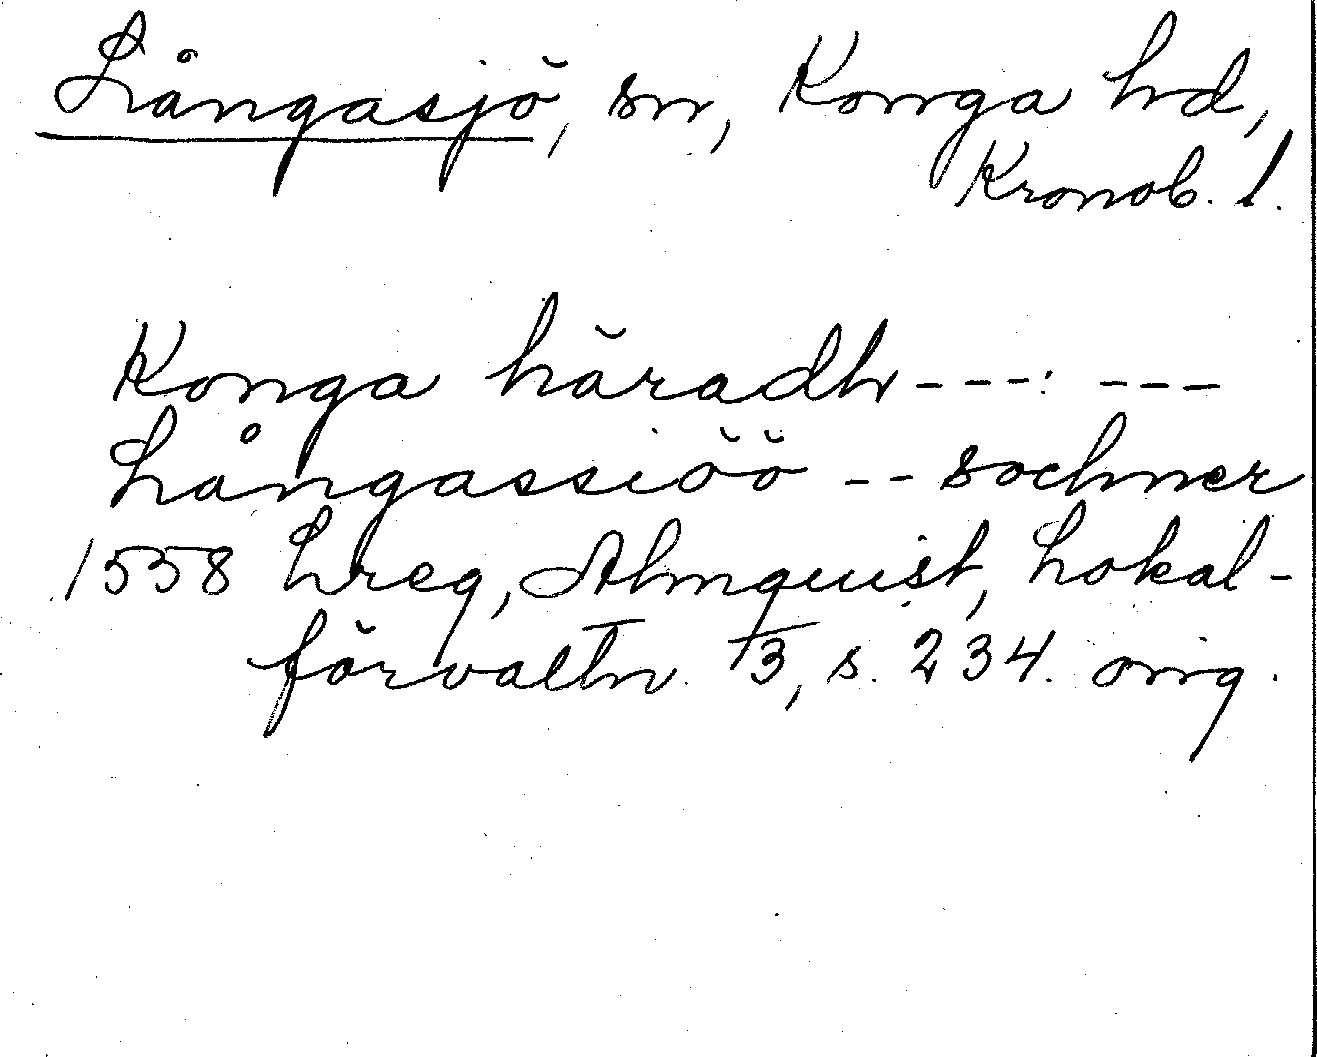 Långasjö, sn, Konga hd,
Kronob. l.
Konga häradh ---: ---
Långassiöö -- sochner
1558 Lreg, Almquist, Lokal-
förvaltn 73, s. 234. orig.